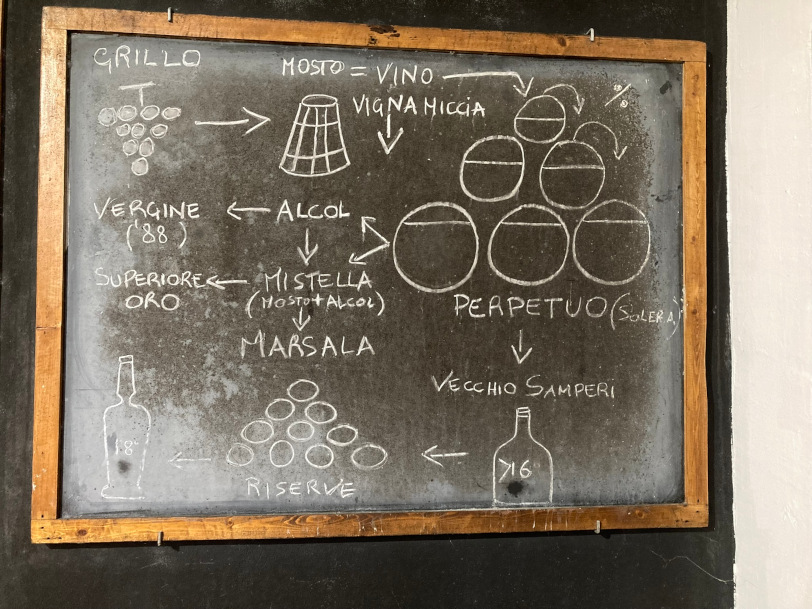 GRILLO
MOSTO = VINO
VIGNA MICCIA
%
VERGINE
('88)
ALCOL
SUPERIORE
ORO
MISTELLA
(MOSTO + ALCOL)
MARSALA
PERPETUO (SOLERA)
VECCHIO SAMPERI
18°
RISERVE
>16°